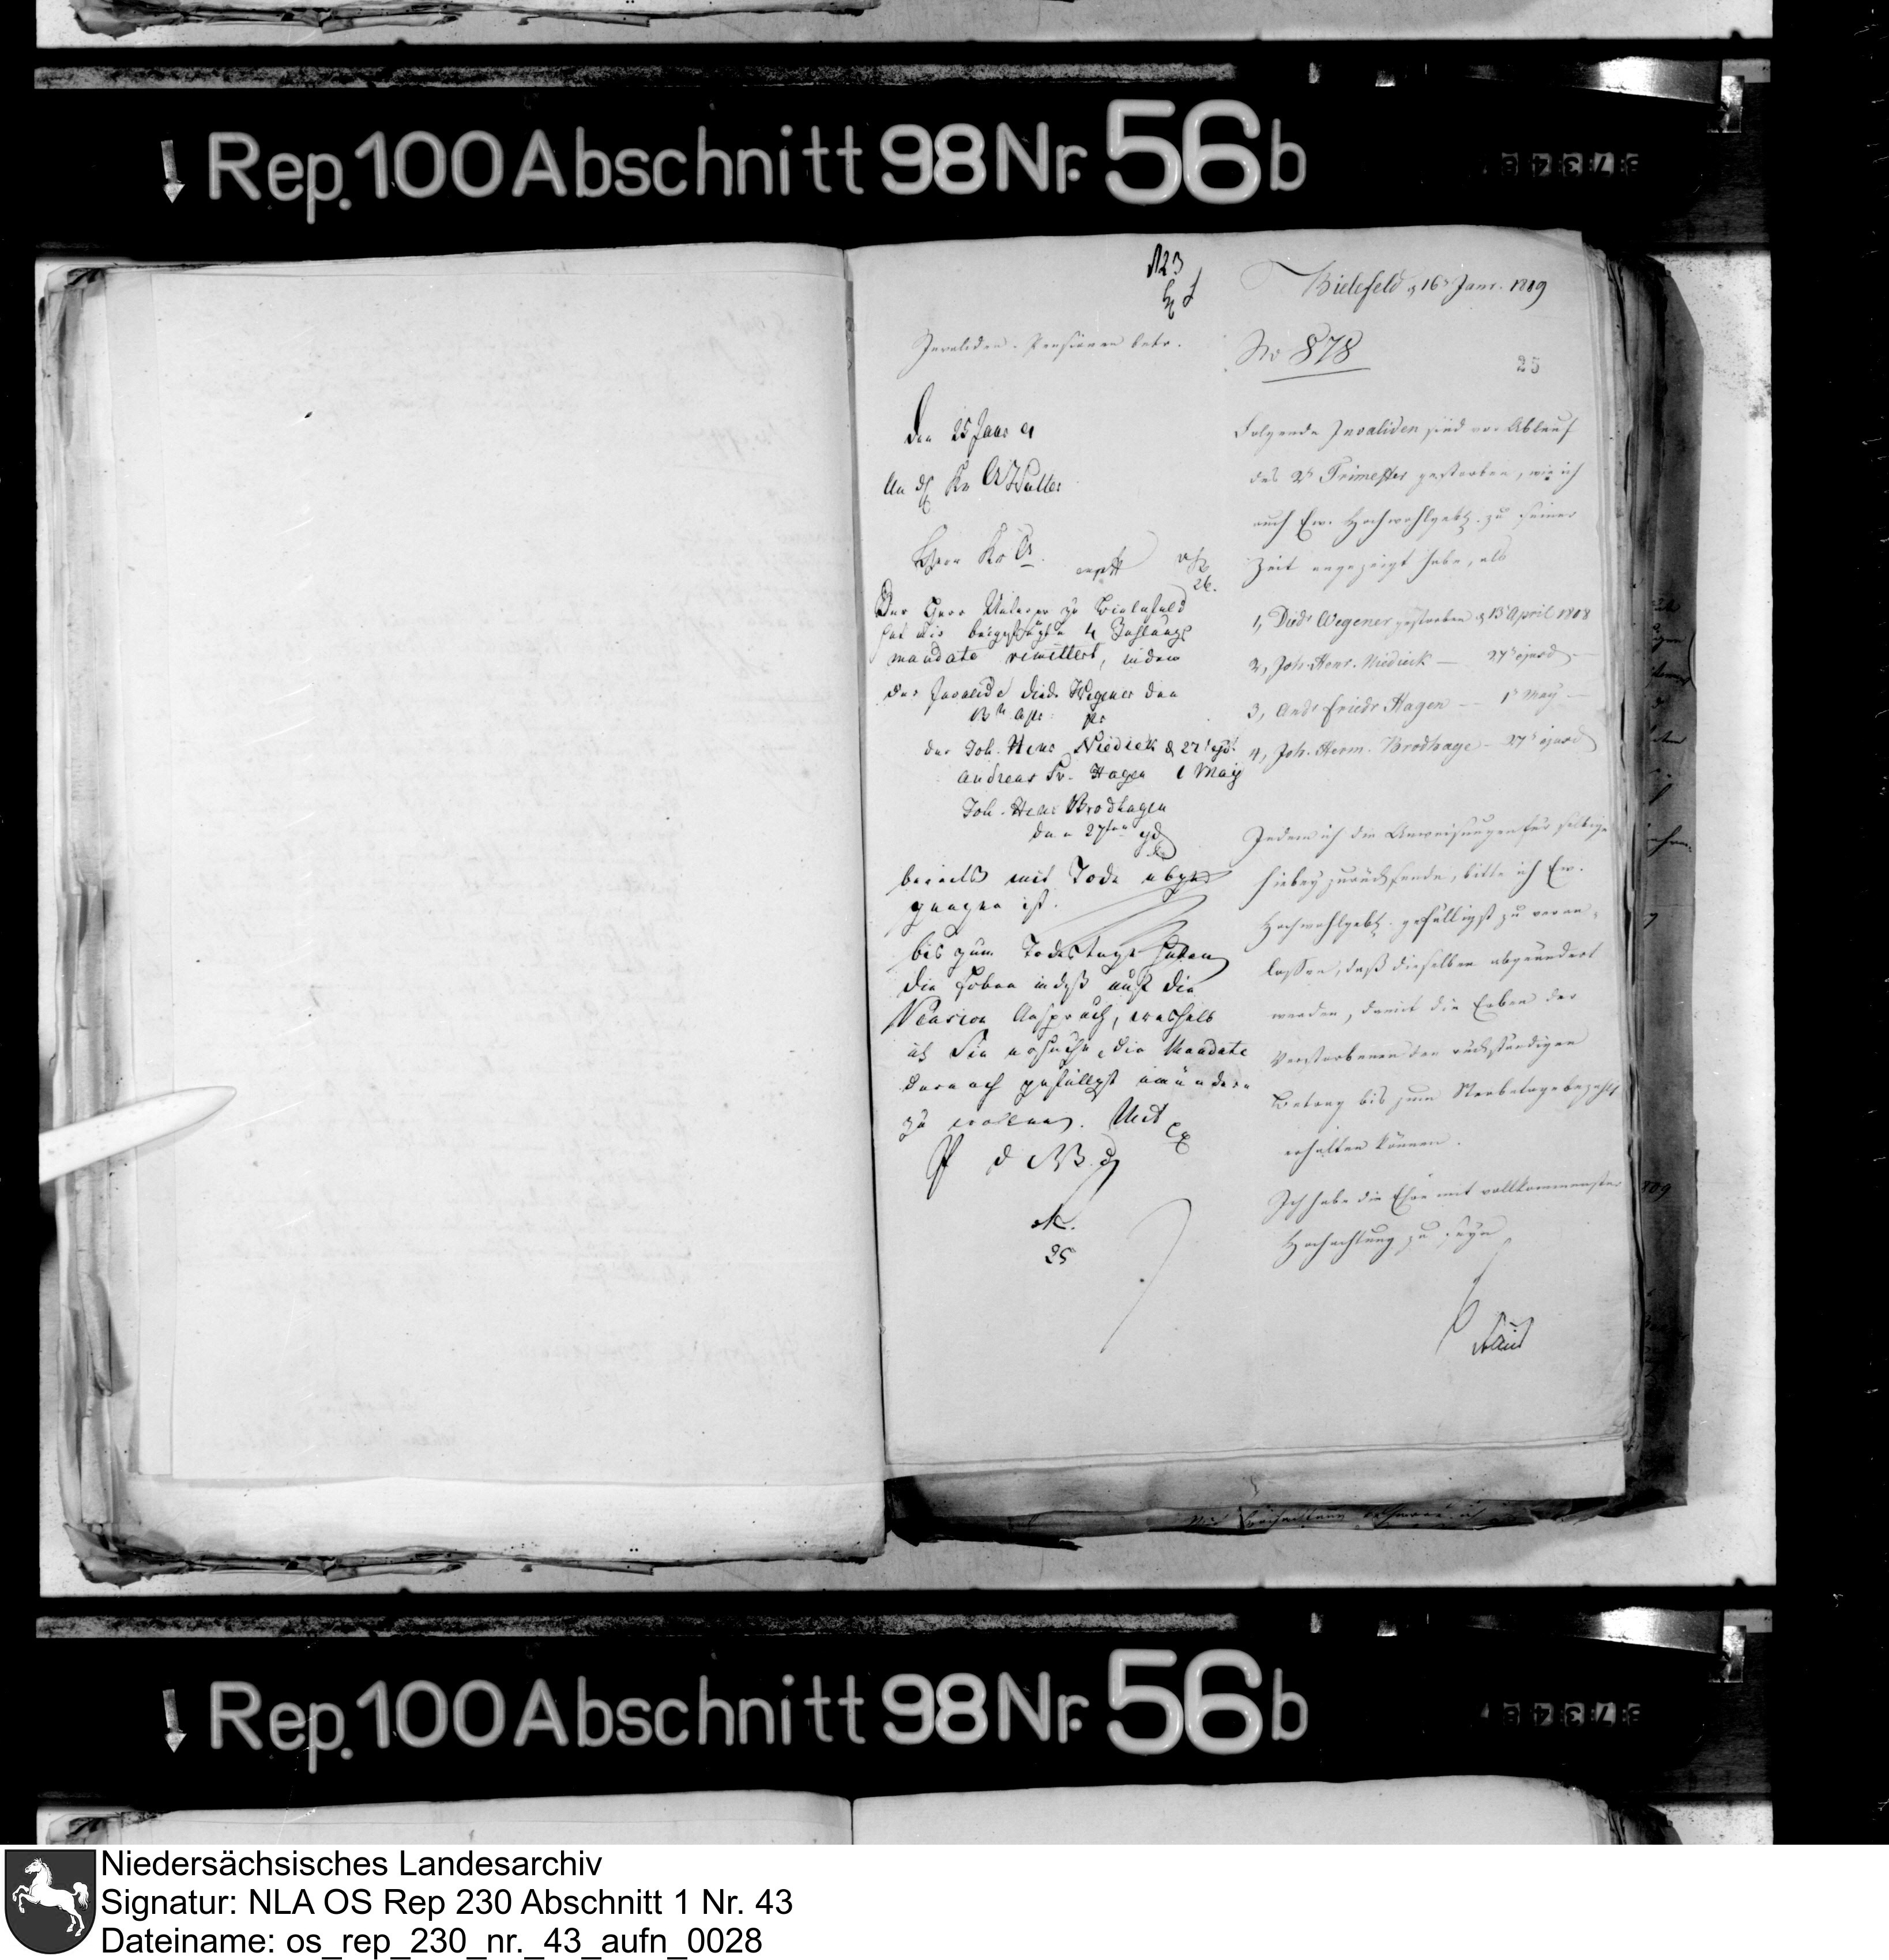 Rep. 100 Abschnitt 98 Nr. 56 b
Bielefeld d 16t Janr. 1809
Invaliden-Pensionen betr.
No 878
25
Den 25 Janr
An
Herrn
26.
Der Herr Unterpr zu Bielefeld
hat mir beigefügte 4 Zahlungs
mandate remittert, indem
der Invalide Died. Wegener den
13ten Apr.
der Joh. Henr Niedieck d 27t ejd.
Andreas Fr. Hagen 1 May
Joh. Henr Brodhagen
den 27ten ejd
bereits mit Tode abge
gangen ist.
bis zum Todestage haben
die Erben indeß auf die
Pension Anspruch, weshalb
ich Sie ersuche, die Mandate
darnach gefälligst
zu wollen. Mit
25
Folgende Invaliden sind vor Ablauf
des 2t Trimester gestorben, wie ich
auch Ew. Hochwohlgeb. zu seiner
Zeit angezeigt habe, als
1, Died. Wegener gestorben d 13t April 1808
2, Joh. Henr. Niedieck — 27t ejusd —
3, And. Friedr Hagen — 1t May —
4, Joh. Herm. Brodhage — 27t ejusd
Indem ich die Anweisungen für selbige
hiebey zurücksende, bitte ich Ew.
Hochwohlgeb. gefälligst zu veran-
lassen, daß dieselben abgeändert
werden, damit die Erben der
Verstorbenen den rückständigen
Betrag bis zum Sterbetage bezahlt
erhalten können.
Ich habe die Ehre mit vollkommenster
Hochachtung zu seyn
Rep. 100 Abschnitt 98 Nr. 56 b
Niedersächsisches Landesarchiv
Signatur: NLA OS Rep 230 Abschnitt 1 Nr. 43
Dateiname: os_rep_230_nr._43_aufn_0028